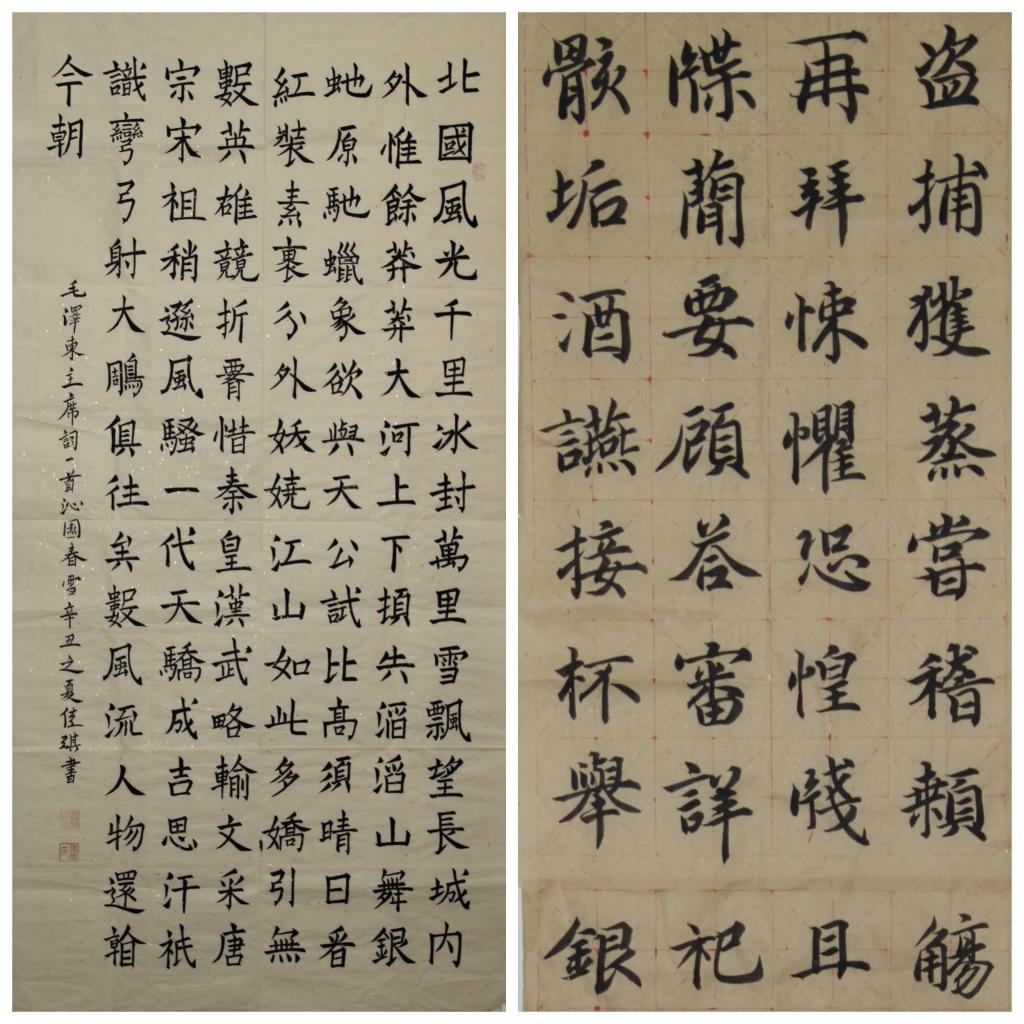 北國風光千里冰封萬里雪飄望長城内
外惟餘莽莽大河上下頓失滔滔山舞銀
虵原馳蠟象欲與天公試比高須晴日看
紅裝素裹分外妖嬈江山如此多嬌引無
數英雄競折腰惜秦皇漢武略輸文采唐
宗宋祖稍遜風騷一代天驕成吉思汗祇
識彎弓射大鵰俱往矣數風流人物還看
今朝
毛澤東主席詞一首沁園春雪辛丑之夏佳琪書
盜捕獲蒸嘗稽顙觴
再拜悚懼恐惶牋且
牒簡要顧答審詳祀
骸垢酒讌接杯舉銀